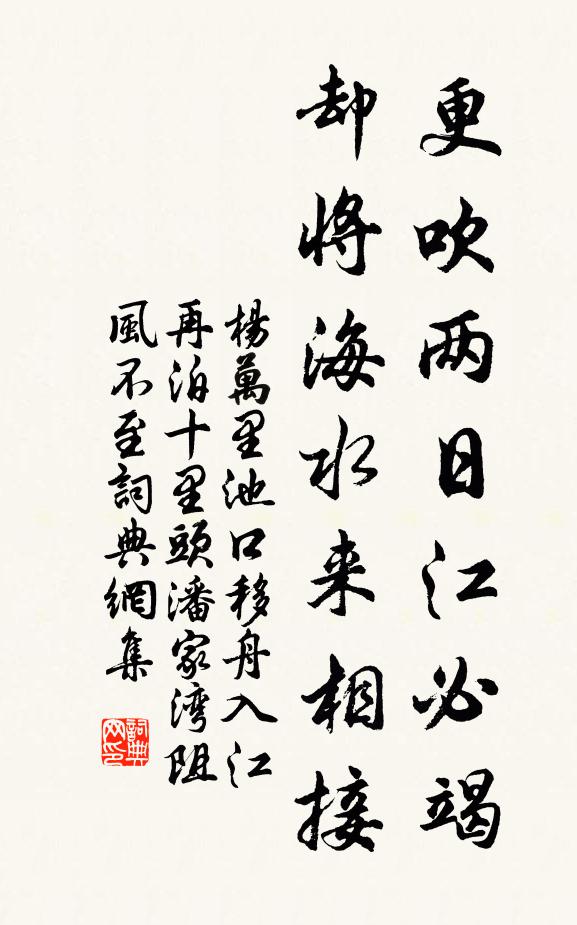 更吹两日江必竭
却将海水来相接
楊萬里池口移舟入江
再泊十里頭潘家湾阻
風不至詞典網集
詞典网印